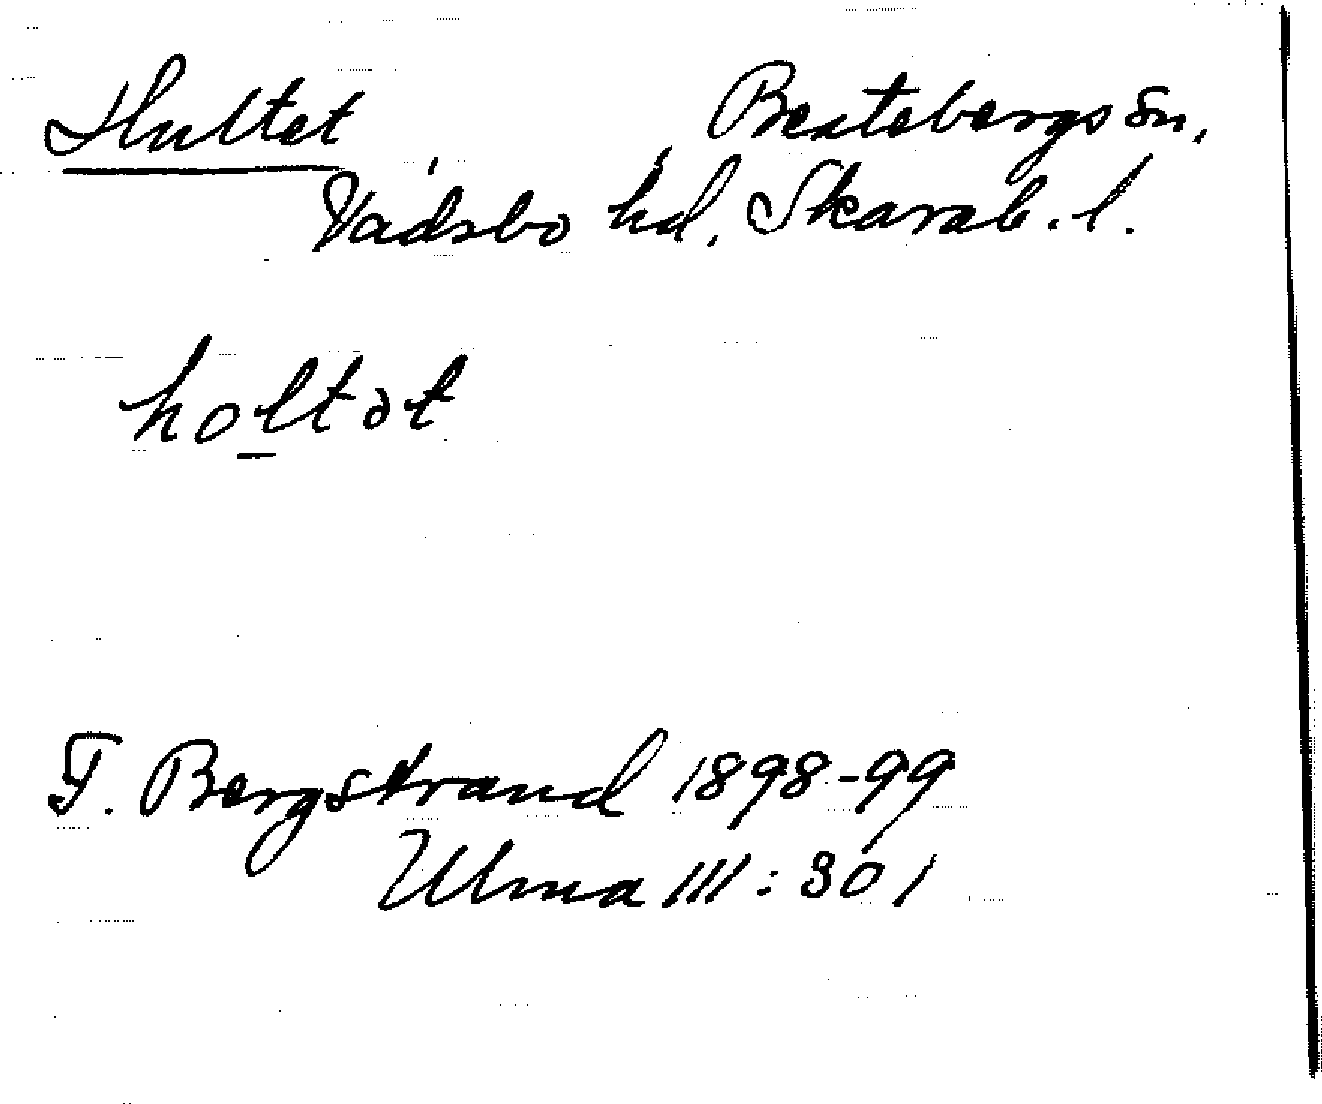 Hultet, Bextebergs Sn,
Vadsbo hd, Skarab. l.
holtət
F. Bergstrand 1898-99
Ulma III: 301